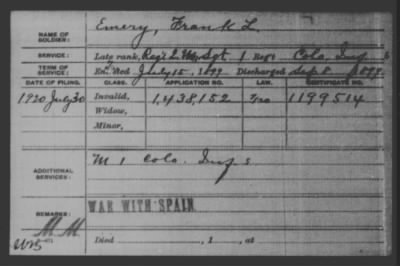 NAME OF SOLDIER: Emery, Frank L.
SERVICE: Late rank, Reg'l Q. M. Sgt 1 Reg't Colo. Inf
TERM OF SERVICE: Enlisted July 15, 1899 Discharged Sep 8 1899
DATE OF FILING. CLASS. APPLICATION NO. LAW. CERTIFICATE NO.
1920 July 30 Invalid, 1,438,152 1199514
Widow,
Minor,
ADDITIONAL SERVICES: M 1 Colo. Inf
REMARKS: WAR WITH SPAIN
M M
Died , 1 , at